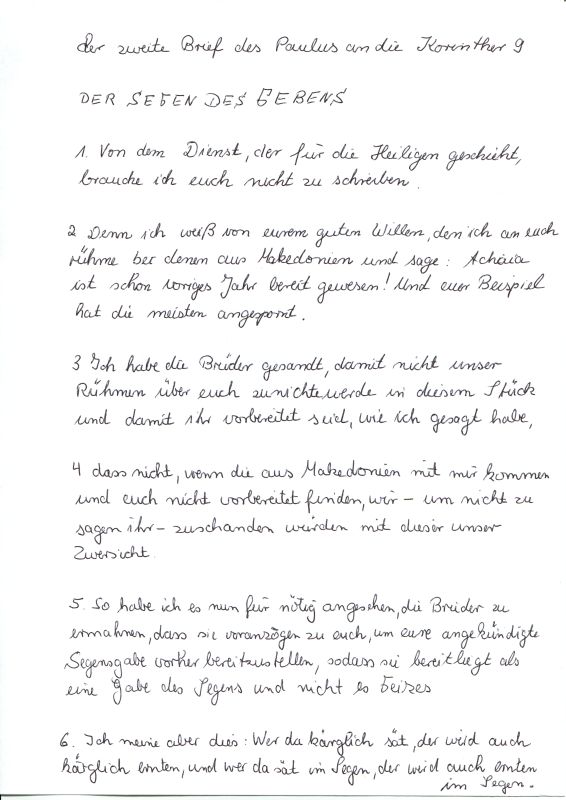 der zweite Brief des Paulus an die Korinther 9
DER SEGEN DES GEBENS
1. Von dem Dienst, der für die Heiligen geschieht,
brauche ich euch nicht zu schreiben.
2 Denn ich weiß von eurem guten Willen, den ich an euch
rühme bei denen aus Makedonien und sage: Achaia
ist schon voriges Jahr bereit gewesen! Und euer Beispiel
hat die meisten angespornt.
3 Ich habe die Brüder gesandt, damit nicht unser
Rühmen über euch zunichtewerde in diesem Stück
und damit ihr vorbereitet seid, wie ich gesagt habe,
4 dass nicht, wenn die aus Makedonien mit mir kommen
und euch nicht vorbereitet finden, wir – um nicht zu
sagen ihr – zuschanden würden mit dieser unser
Zuversicht.
5. So habe ich es nun für nötig angesehen, die Brüder zu
ermahnen, dass sie voranzögen zu euch, um eure angekündigte
Segensgabe vorher bereitzustellen, sodass sie bereitliegt als
eine Gabe des Segens und nicht es Geizes
6. Ich meine aber dies: Wer da kärglich sät, der wird auch
kärglich ernten, und wer da sät im Segen, der wird auch ernten
im Segen.